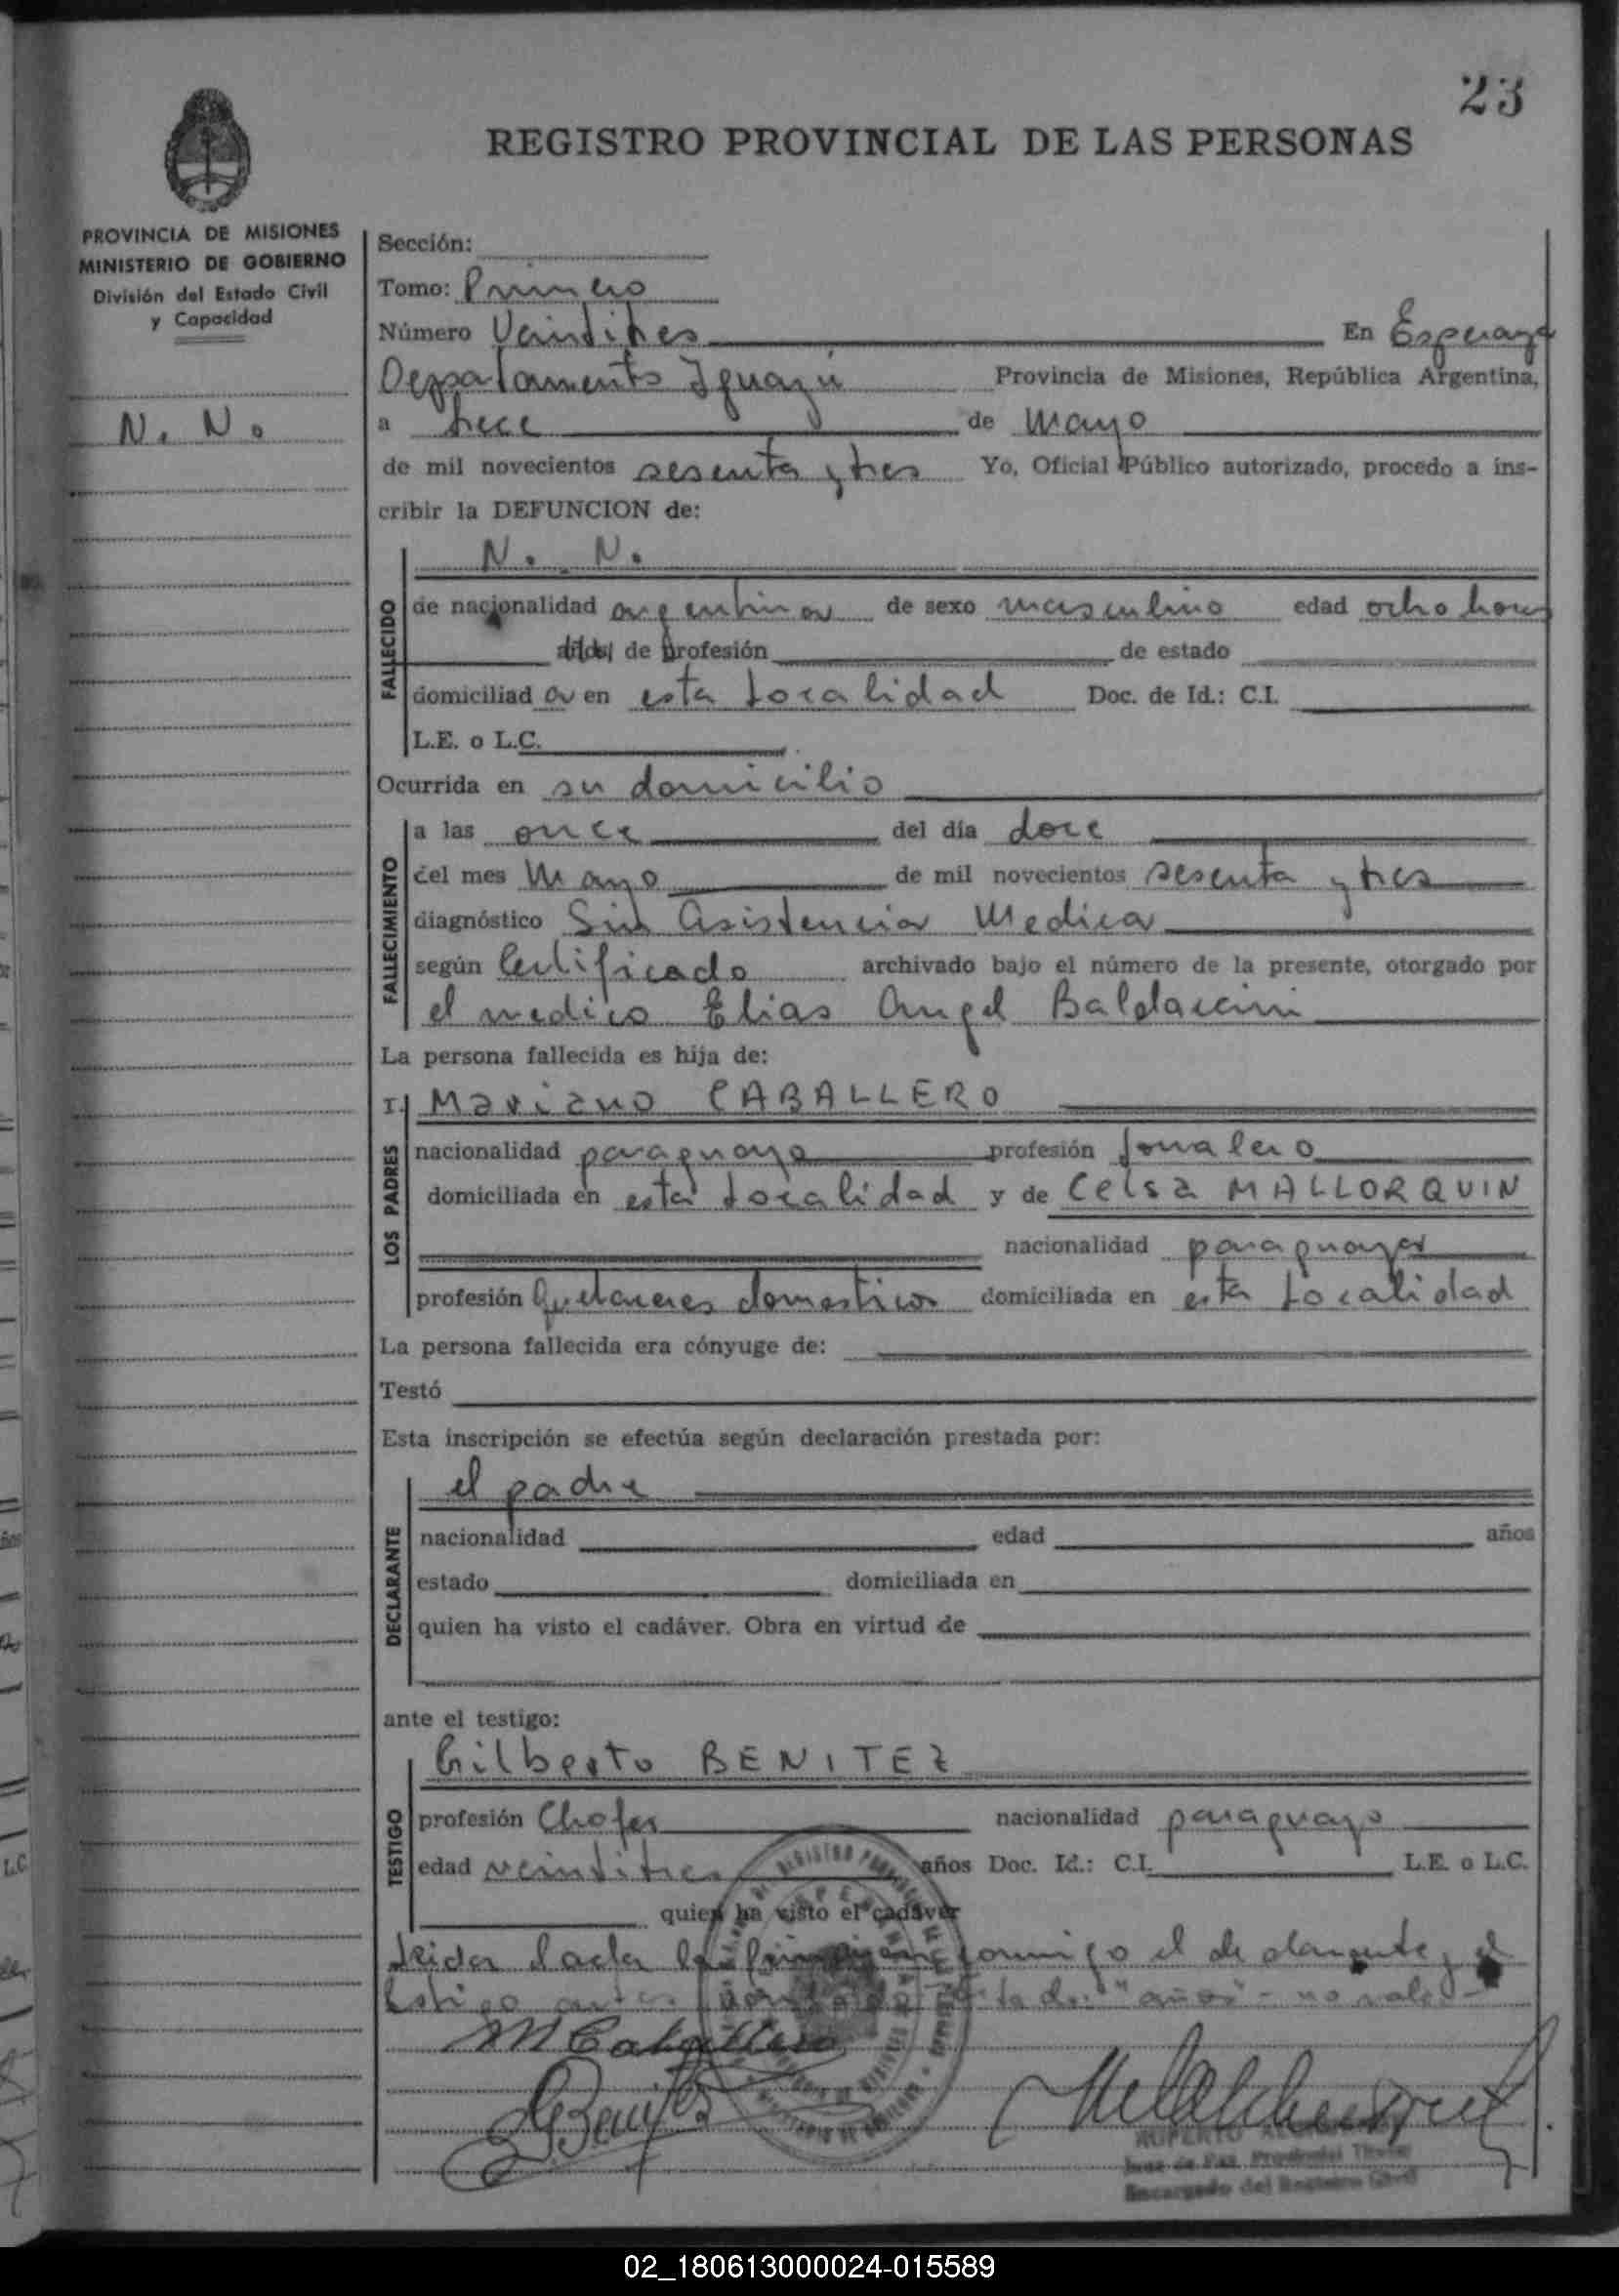 23
REGISTRO PROVINCIAL DE LAS PERSONAS
PROVINCIA DE MISIONES
MINISTERIO DE GOBIERNO
División del Estado Civil
y Capacidad
N. N.
Sección:
Tomo: Primero
Número Veintitres En Esperanza
Departamento Iguazú Provincia de Misiones, República Argentina,
a trece de Mayo
de mil novecientos sesenta y tres Yo, Oficial Público autorizado, procedo a ins-
cribir la DEFUNCION de:
N. N.
FALLECIDO
de nacionalidad argentina de sexo masculino edad ocho horas
años de profesión de estado
domiciliad a en esta Localidad Doc. de Id.: C.I.
L.E. o L.C.
Ocurrida en su domicilio
FALLECIMIENTO
a las once del día doce
del mes Mayo de mil novecientos sesenta y tres
diagnóstico Sin Asistencia Medica
según Certificado archivado bajo el número de la presente, otorgado por
el medico Elias Angel Baldaccini
La persona fallecida es hija de:
LOS PADRES
I. Mariano CABALLERO
nacionalidad paraguaya profesión Jornalero
domiciliada en esta Localidad y de Celsa MALLORQUIN
nacionalidad paraguaya
profesión Quehaceres domesticos domiciliada en esta Localidad
La persona fallecida era cónyuge de:
Testó
Esta inscripción se efectúa según declaración prestada por:
DECLARANTE
el padre
nacionalidad edad años
estado domiciliada en
quien ha visto el cadáver. Obra en virtud de
ante el testigo:
TESTIGO
Gilberto BENITEZ
profesión Chofer nacionalidad paraguayo
edad veintitres años Doc. Id.: C.I. L.E. o L.C.
quien ha visto el cadáver
Leida el acta la firman conmigo el declarante y el
testigo antes "años" - no vale -
M Caballero
Benitez
RUPERTO
Juez de Paz Provincial Titular
Encargado del Registro Civil
02_180613000024-015589